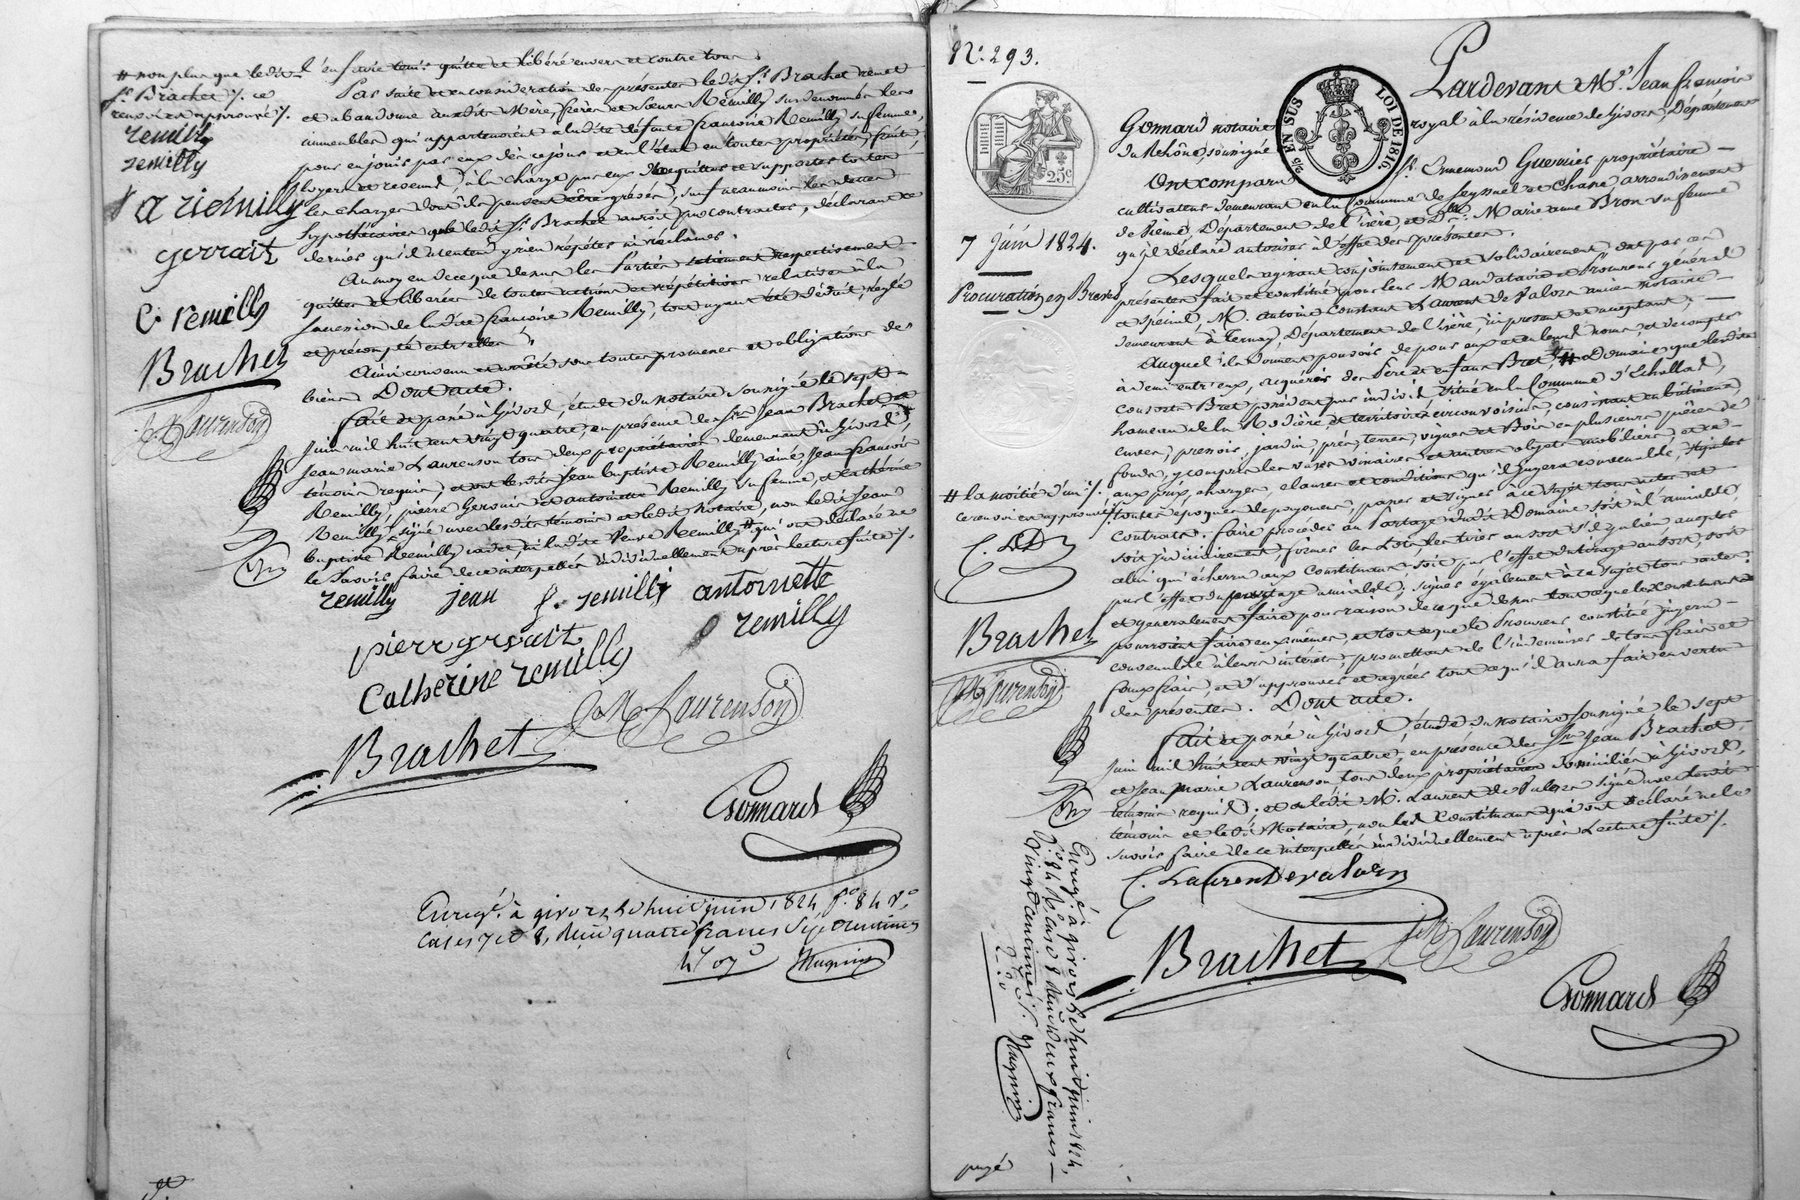 l'en faire tenir quitte et libéré envers et contre tous.
Par suite et en considération des présentes ledit Sr. Brachet remet
et abandonne auxdits Mère, frères et sœurs Remilly susdénommés les
immeubles qui appartenoient à ladite défunte françoise Remilly sa femme,
pour en jouir par eux dès ce jour et en l'état en toutes propriétés, fruits,
loyers et revenus, à la charge par eux d'acquitter et supporter toutes
les charges dont ils peuvent être grévés, sauf néanmoins les dettes
hypothécaires que ledit Sr. Brachet auroit pu contracter, déclarant ce
dernier qu'il n'entend y rien répéter ni réclamer.
Au moyen de ce que dessus les Parties se tiennent respectivement
quittes et libérées de toutes actions et répétitions relatives à la
succession de ladite françoise Remilly, tout ayant été déduit, réglé
et précompté entr'elles.
Ainsi convenu et arrêté sous toutes promesses et obligations de
biens Dont acte.
fait et passé à Givors, étude du notaire soussigné le sept
Juin mil huit cent vingt quatre, en présence des Srs. Jean Brachet et
Jean marie Laurenson tous deux propriétaires demeurant à Givors,
témoins requis, et ont lesdits Jean baptiste Remilly ainé, Jean françois
Remilly, pierre Gervais et antoinette Remilly sa femme, et Catherine
Remilly signé avec lesdits témoins et ledit Notaire, non ledit Jean
baptiste Remilly cadet, ni ladite Veuve Remilly # qui ont déclaré ne
le savoir faire de ce interpellés individuellement après lecture faite %.
# non plus que ledit
Sr. Brachet %. ce
renvoi est approuvé %.
remilly
remilly
a remilly
C. remilly
Brachet
JM Laurenson
remilly jean f. remilly antoinette
remilly
Catherine remilly
JM Laurenson
Brachet
Gonnard
Enregé. à givors le huit juin 1824 fo. 84 Vo.
Cases 7 et 8, reçu quatre francs sept centimes
4f 07c Hugnin
No. 293.
25c
25 EN SUS LOI DE 1816
7 Juin 1824.
Procuration en Brevet
Pardevant Me. Jean françois
Gonnard notaire royal à la résidence de Givors, Département
du Rhône, soussigné
Ont comparu Sr. Ennemond Guernier propriétaire
cultivateur demeurant en la Commune de Seyssuel et Chasse arrondissement
de Vienne, Département de l'Isère, et De. Marie anne Bron sa femme
qu'il déclare autoriser à l'effet des présentes.
Lesquels agissant conjointement et solidairement ont par ces
présentes fait et constitué pour leur Mandataire et Procureur général
et spécial, M. Antoine Constant Laurent de Valors ancien notaire
demeurant à Ternay, Département de l'Isère, ici présent et acceptant,
Auquel ils donnent pouvoir de pour eux et en leurs noms et de compte
à demi entr'eux, acquérir des Père et enfans Bret, # Domaine que lesdits
consorts Bret possèdent par indivis situé en la Commune d'Echallas,
hameau de la Rodière et territoires circonvoisins, consistant en bâtimens,
cuves, pressoir, jardin, prés, terres, vignes et Bois en plusieurs pièces de
fonds, y compris les vases vinaires et autres objets mobiliers, et ce
aux prix, charges, clauses et conditions qu'il jugera convenable, stipuler
toutes époques de payemens, passer et signer à ce sujet tous actes et
contrats; faire procéder au Partage dudit Domaine soit à l'amiable,
soit judiciairement, former les Lots, les tirer au sort s'il y a lieu accepter
celui qui écherra aux Constituans soit par l'effet du tirage au sort, soit
par l'effet du partage amiable; signer également à ce sujet tous actes;
et généralement faire pour raison de ce que dessus tout ce que les constituans
pourroient faire eux-mêmes, et tout ce que le Procureur constitué jugera
convenable à leurs intérêts; promettant de l'indemniser de tous frais et
faux frais, et d'approuver et agréer tout ce qu'il aura fait en vertu
des présentes. Dont acte.
fait et passé à Givors, étude du notaire soussigné le sept
Juin mil huit cent vingt quatre, en présence des Srs. Jean Brachet,
et Jean marie Laurenson tous deux propriétaires domiciliés à Givors,
témoins requis; et a ledit M. Laurent de Valors signé avec lesdits
témoins et ledit Notaire, non les Constituans qui ont déclaré ne le
savoir faire de ce interpellés individuellement après Lecture faite %.
# la moitié d'un %.
ce renvoi est approuvé %.
C. LDV
Brachet
JM Laurenson
C. Laurent Devalors
JM Laurenson
Brachet
Gonnard
Enregé. à givors le huit juin 1824,
fo. 84 Vo. Case 8 reçu deux francs
vingt centimes %.
2f 20 Hugnin